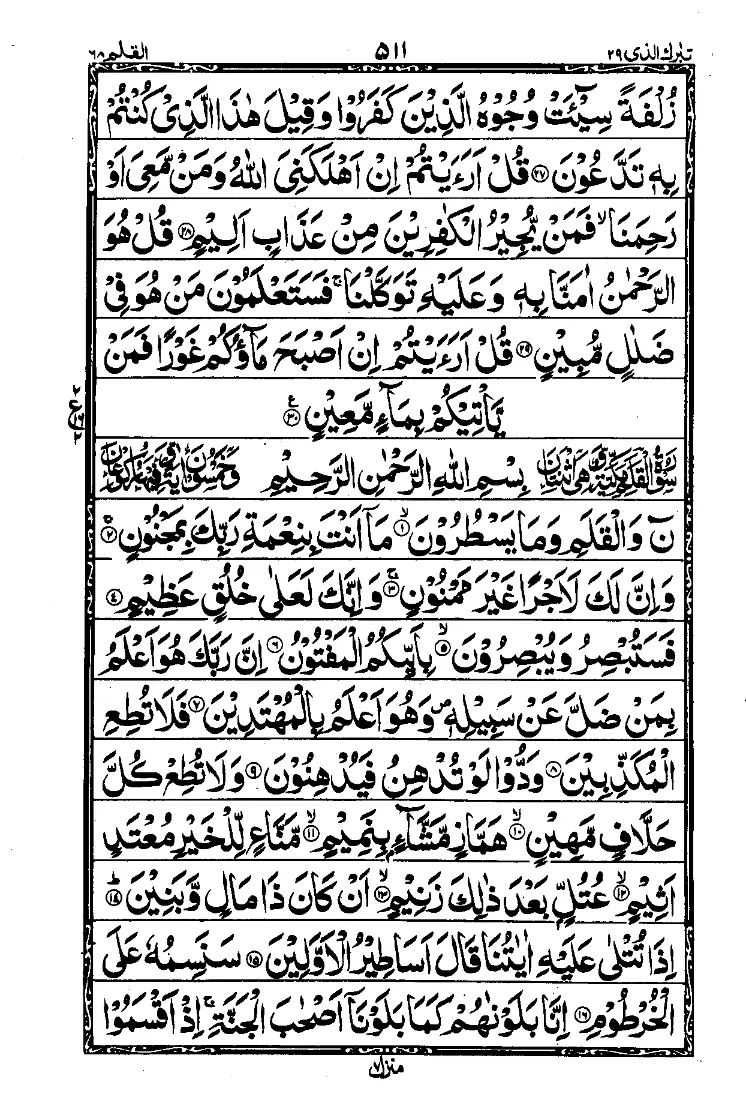 تبرك الذی ۲۹ ۵۱۱ القلم ۶۸
زُلْفَةً سِيْٓئَتْ وُجُوْهُ الَّذِيْنَ كَفَرُوْا وَقِيْلَ هٰذَا الَّذِيْ كُنْتُمْ
بِهٖ تَدَّعُوْنَ ﴿۲۷﴾ قُلْ اَرَءَيْتُمْ اِنْ اَهْلَكَنِيَ اللّٰهُ وَمَنْ مَّعِيَ اَوْ
رَحِمَنَا ۙ فَمَنْ يُّجِيْرُ الْكٰفِرِيْنَ مِنْ عَذَابٍ اَلِيْمٍ ﴿۲۸﴾ قُلْ هُوَ
الرَّحْمٰنُ اٰمَنَّا بِهٖ وَعَلَيْهِ تَوَكَّلْنَا ۚ فَسَتَعْلَمُوْنَ مَنْ هُوَ فِيْ
ضَلٰلٍ مُّبِيْنٍ ﴿۲۹﴾ قُلْ اَرَءَيْتُمْ اِنْ اَصْبَحَ مَآؤُكُمْ غَوْرًا فَمَنْ
يَّاْتِيْكُمْ بِمَآءٍ مَّعِيْنٍ ﴿۳۰﴾ ع
سُوْرَةُ الْقَلَمِ مَكِّيَّةٌ وَّهِيَ اثْنَتَانِ بِسْمِ اللّٰهِ الرَّحْمٰنِ الرَّحِيْمِ وَخَمْسُوْنَ اٰيَةً وَّفِيْهَا رُكُوْعَانِ
نٓ وَالْقَلَمِ وَمَا يَسْطُرُوْنَ ۙ﴿۱﴾ مَآ اَنْتَ بِنِعْمَةِ رَبِّكَ بِمَجْنُوْنٍ ۚ﴿۲﴾
وَاِنَّ لَكَ لَاَجْرًا غَيْرَ مَمْنُوْنٍ ۚ﴿۳﴾ وَاِنَّكَ لَعَلٰى خُلُقٍ عَظِيْمٍ ﴿۴﴾
فَسَتُبْصِرُ وَيُبْصِرُوْنَ ۙ﴿۵﴾ بِاَىيِّكُمُ الْمَفْتُوْنُ ﴿۶﴾ اِنَّ رَبَّكَ هُوَ اَعْلَمُ
بِمَنْ ضَلَّ عَنْ سَبِيْلِهٖ ۪ وَهُوَ اَعْلَمُ بِالْمُهْتَدِيْنَ ﴿۷﴾ فَلَا تُطِعِ
الْمُكَذِّبِيْنَ ﴿۸﴾ وَدُّوْا لَوْ تُدْهِنُ فَيُدْهِنُوْنَ ﴿۹﴾ وَلَا تُطِعْ كُلَّ
حَلَّافٍ مَّهِيْنٍ ۙ﴿۱۰﴾ هَمَّازٍ مَّشَّآءٍۭ بِنَمِيْمٍ ۙ﴿۱۱﴾ مَّنَّاعٍ لِّلْخَيْرِ مُعْتَدٍ
اَثِيْمٍ ۙ﴿۱۲﴾ عُتُلٍّۭ بَعْدَ ذٰلِكَ زَنِيْمٍ ۙ﴿۱۳﴾ اَنْ كَانَ ذَا مَالٍ وَّبَنِيْنَ ؕ﴿۱۴﴾
اِذَا تُتْلٰى عَلَيْهِ اٰيٰتُنَا قَالَ اَسَاطِيْرُ الْاَوَّلِيْنَ ﴿۱۵﴾ سَنَسِمُهٗ عَلَى
الْخُرْطُوْمِ ﴿۱۶﴾ اِنَّا بَلَوْنٰهُمْ كَمَا بَلَوْنَآ اَصْحٰبَ الْجَنَّةِ ۚ اِذْ اَقْسَمُوْا
منزل ۷